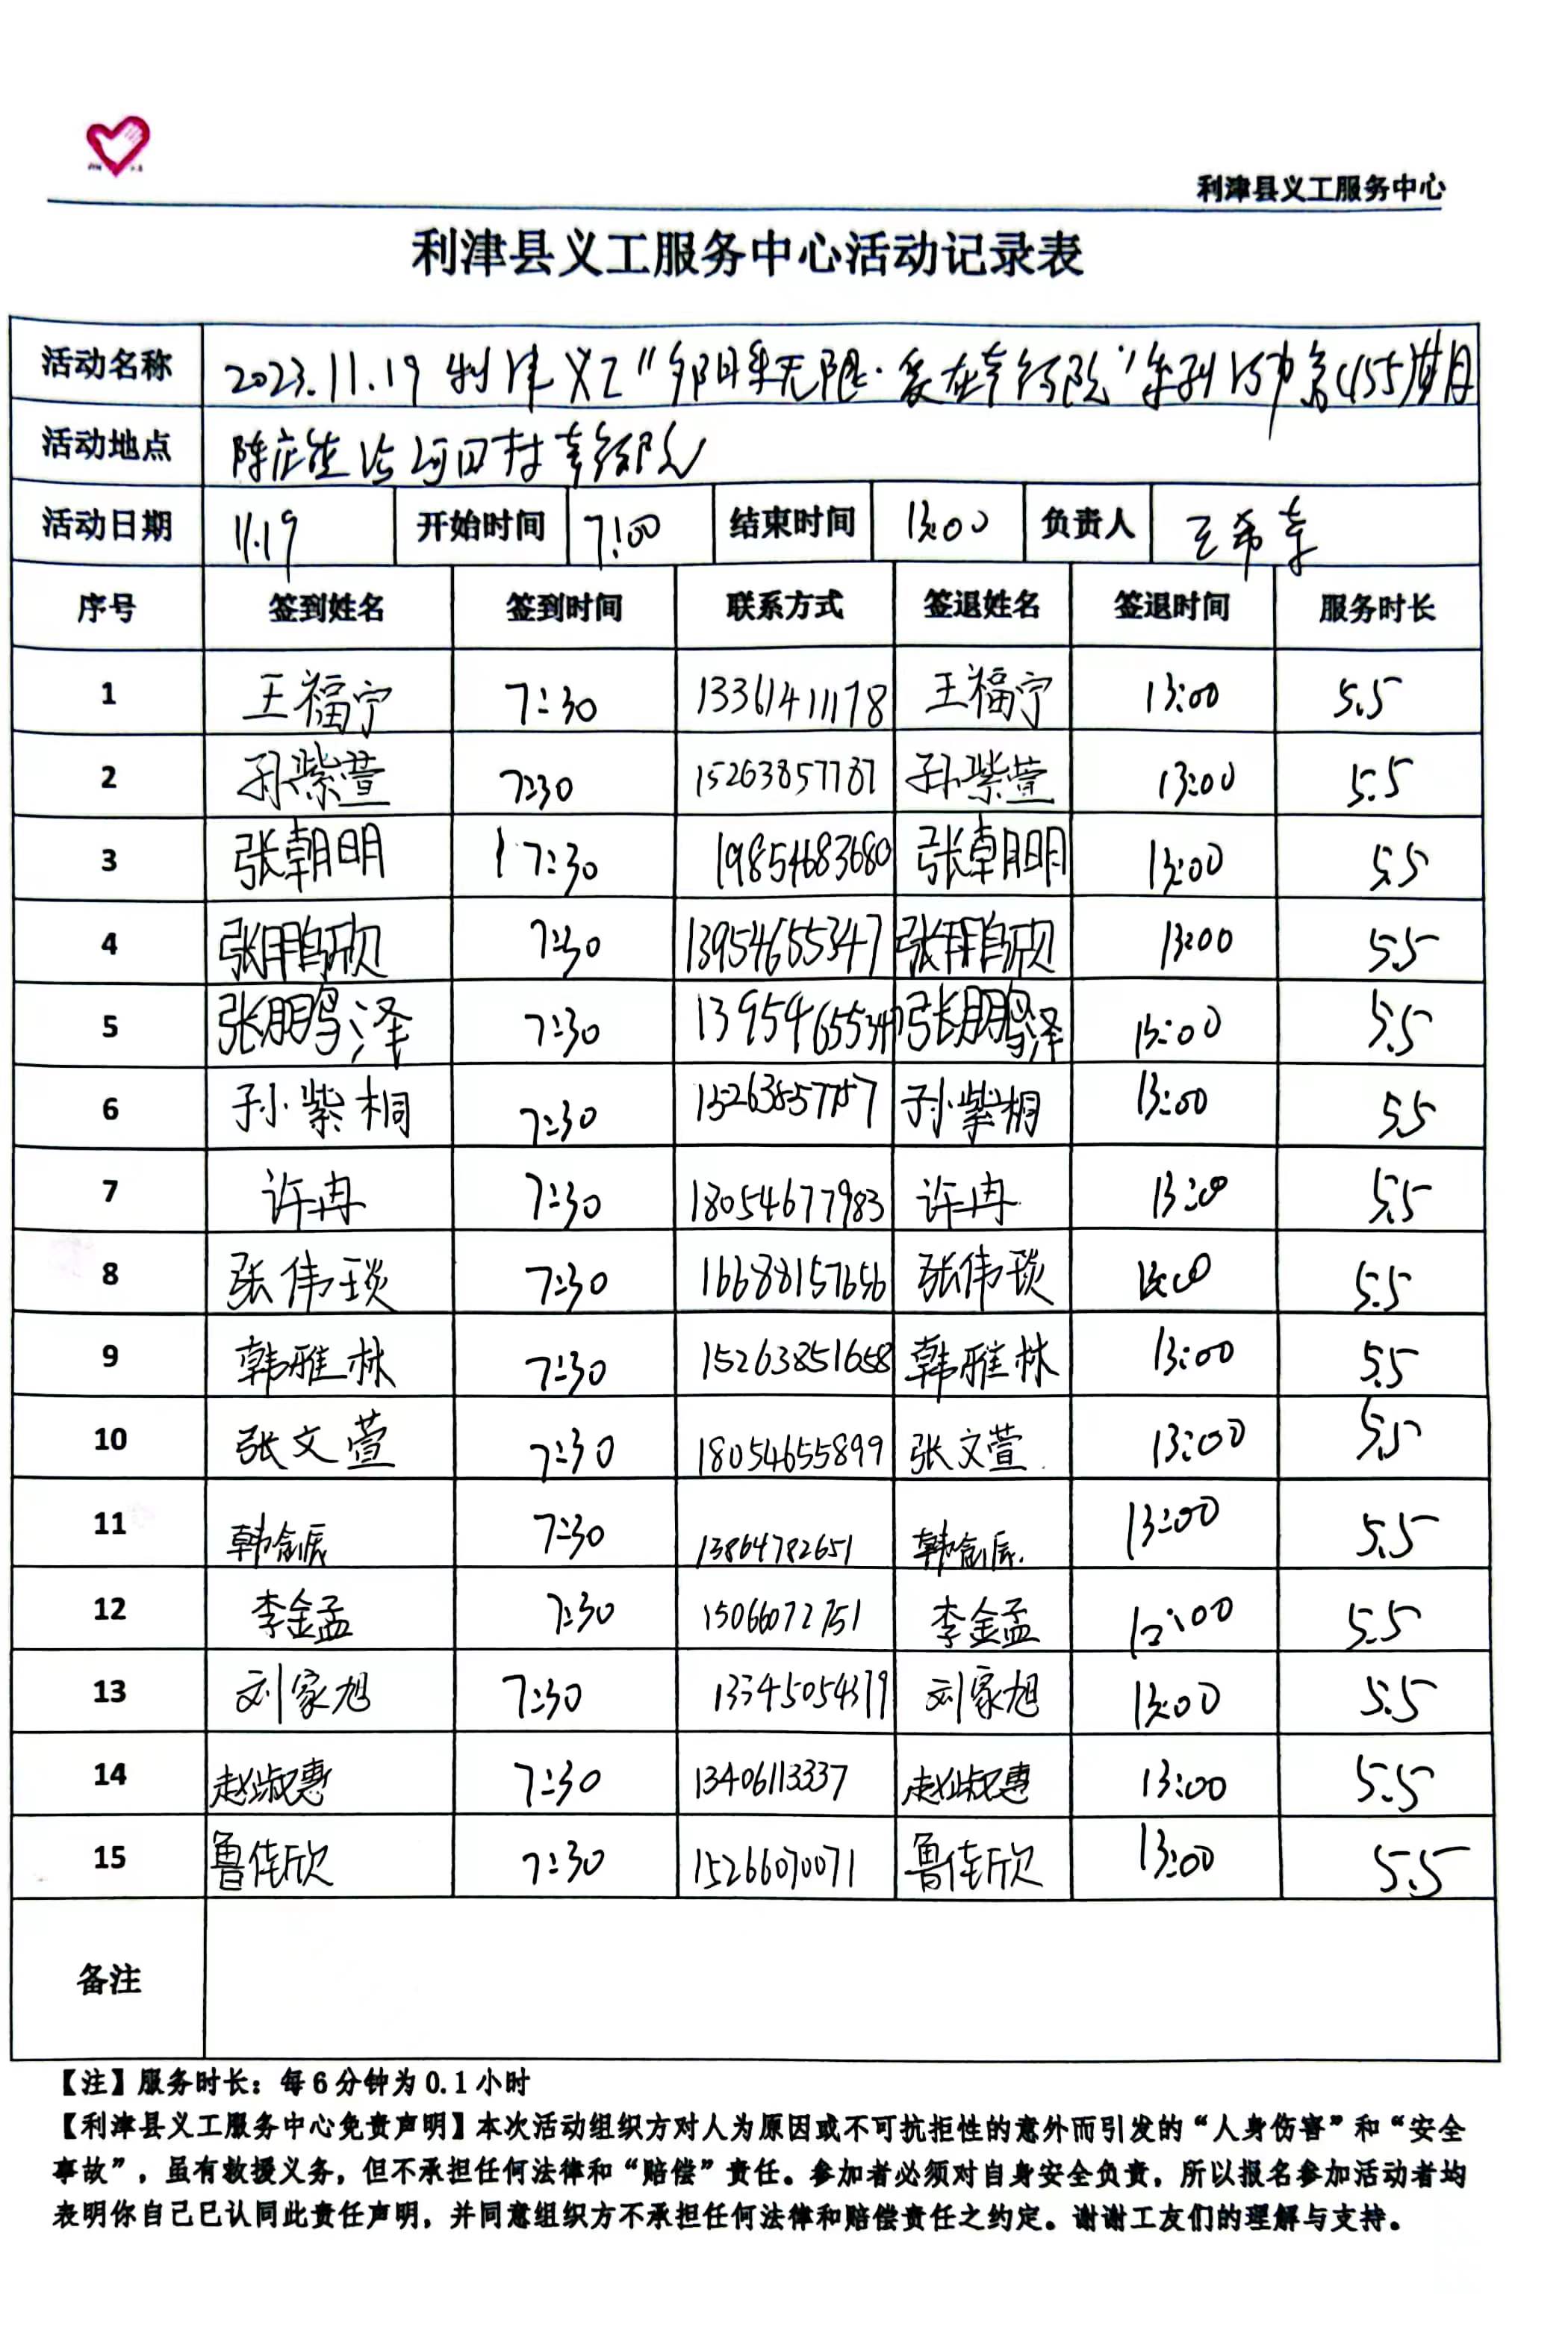 利津县义工服务中心
利津县义工服务中心活动记录表
活动名称 2023.11.19 利津义工"夕阳无限·爱在敬老院"系列活动第455期
活动地点 陈庄镇 村敬老院
活动日期 11.19 开始时间 7:00 结束时间 13:00 负责人 王希
序号 签到姓名 签到时间 联系方式 签退姓名 签退时间 服务时长
1 王福宁 7:30 13361411178 王福宁 13:00 5.5
2 孙紫萱 7:30 15263857787 孙紫萱 13:00 5.5
3 张朝明 7:30 19854683680 张朝明 13:00 5.5
4 张鹏欣 7:30 13954655347 张鹏欣 13:00 5.5
5 张鹏泽 7:30 13954655347 张鹏泽 13:00 5.5
6 孙紫桐 7:30 孙紫桐 13:00 5.5
7 许冉 7:30 18054677983 许冉 13:00 5.5
8 张伟琰 7:30 16688157656 张伟琰 13:00 5.5
9 韩雅林 7:30 15263851658 韩雅林 13:00 5.5
10 张文萱 7:30 18054655899 张文萱 13:00 5.5
11 7:30 13864782651 13:00 5.5
12 李金孟 7:30 15066072751 李金孟 13:00 5.5
13 刘家旭 7:30 13345054379 刘家旭 13:00 5.5
14 赵淑惠 7:30 13406113337 赵淑惠 13:00 5.5
15 鲁佳欣 7:30 15266070071 鲁佳欣 13:00 5.5
备注
【注】服务时长：每6分钟为0.1小时
【利津县义工服务中心免责声明】本次活动组织方对人为原因或不可抗拒性的意外而引发的“人身伤害”和“安全
事故”，虽有救援义务，但不承担任何法律和“赔偿”责任。参加者必须对自身安全负责，所以报名参加活动者均
表明你自己已认同此责任声明，并同意组织方不承担任何法律和赔偿责任之约定。谢谢工友们的理解与支持。